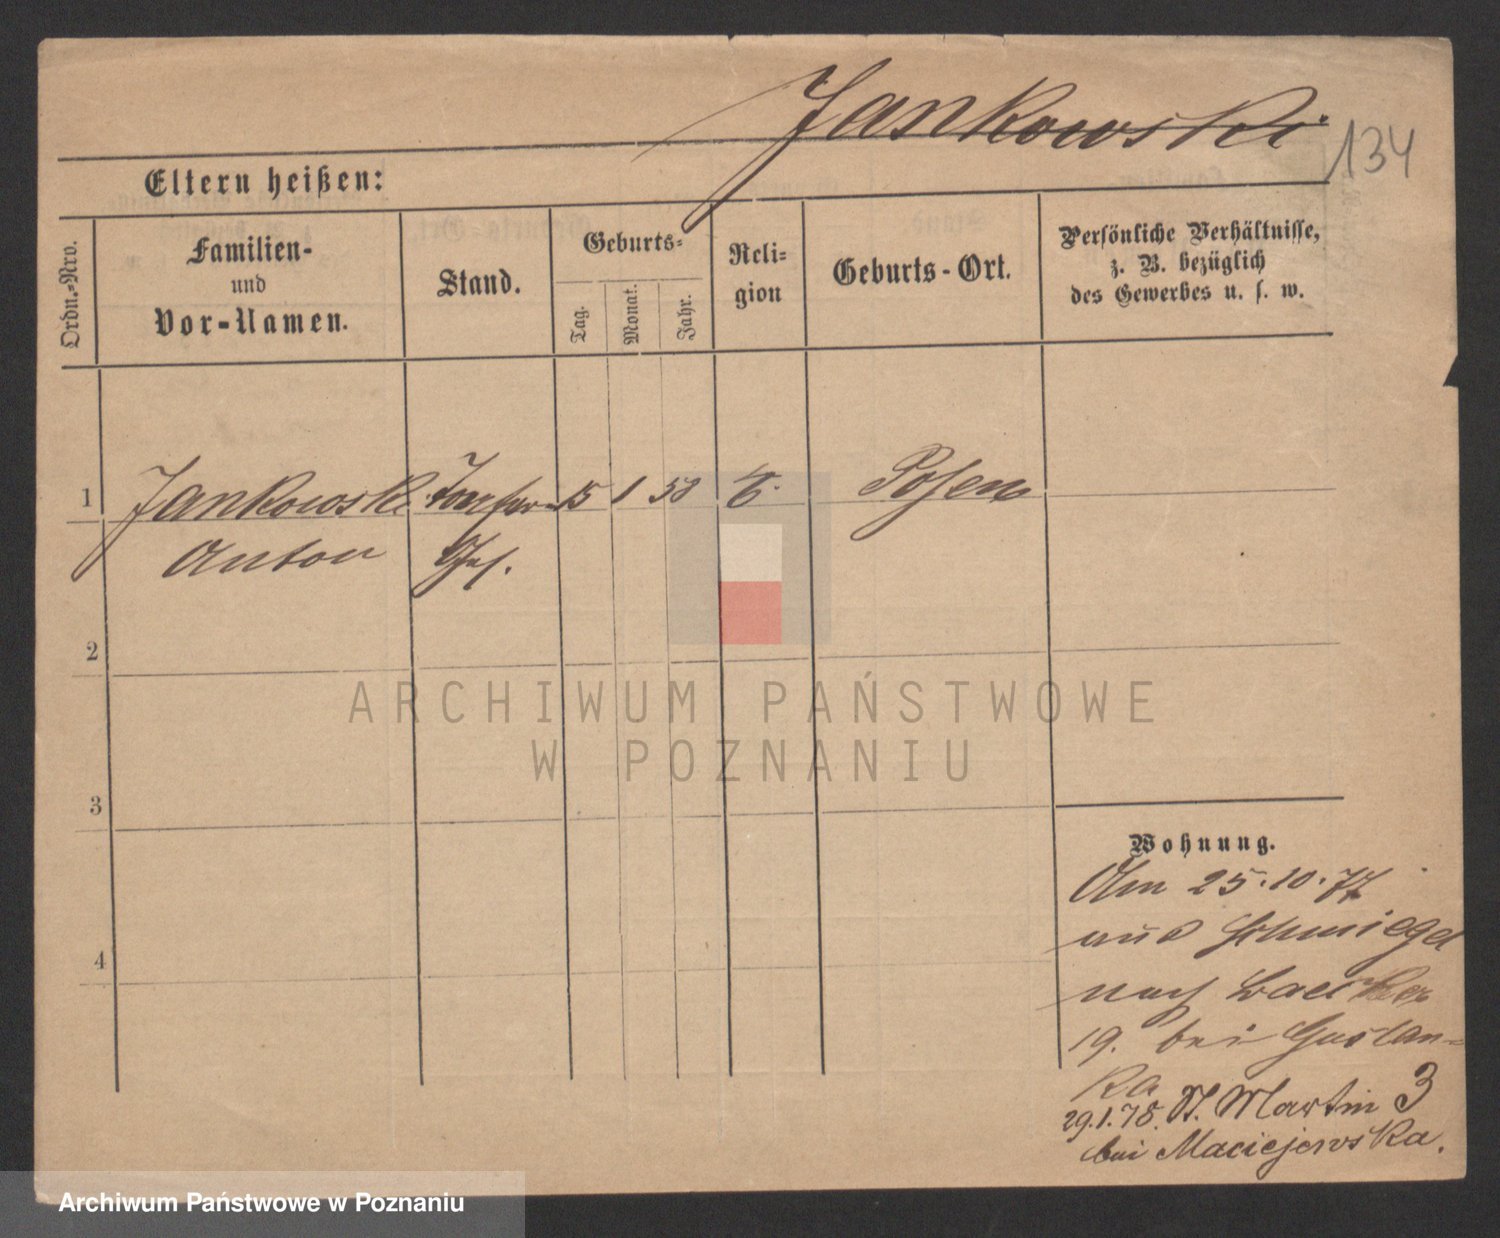 Jankowski
134
Eltern heißen:
Ordn.-Nro.
Familien-
und
Vor-Namen.
Stand.
Geburts-
Tag.
Monat.
Jahr.
Reli-
gion
Geburts-Ort.
Persönliche Verhältnisse,
z. B. bezüglich
des Gewerbes u. s. w.
1
Jankowski
15
1
58
Posen
Anton
2
3
4
ARCHIWUM PAŃSTWOWE
W POZNANIU
Wohnung.
Am 25.10.77
aus Schmiegel
nach
19. bei Guslan-
ka
29.1.78. St. Martin 3
bei Maciejewska.
Archiwum Państwowe w Poznaniu